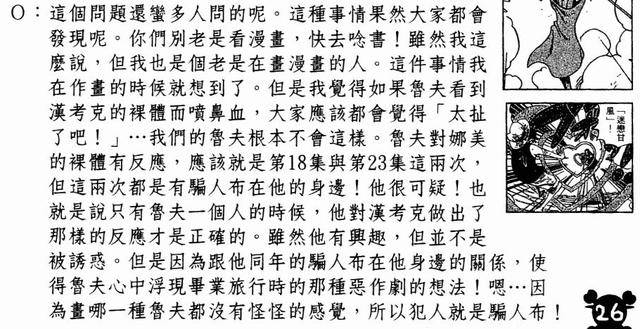 O：這個問題還蠻多人問的呢。這種事情果然大家都會
發現呢。你們別老是看漫畫，快去唸書！雖然我這
麼說，但我也是個老是在畫漫畫的人。這件事情我
在作畫的時候就想到了。但是我覺得如果魯夫看到
漢考克的裸體而噴鼻血，大家應該都會覺得「太扯
了吧！」…我們的魯夫根本不會這樣。魯夫對娜美
的裸體有反應，應該就是第18集與第23集這兩次，
但這兩次都是有騙人布在他的身邊！他很可疑！也
就是說只有魯夫一個人的時候，他對漢考克做出了
那樣的反應才是正確的。雖然他有興趣，但並不是
被誘惑。但是因為跟他同年的騙人布在他身邊的關係，使
得魯夫心中浮現畢業旅行時的那種惡作劇的想法！嗯…因
為畫哪一種魯夫都沒有怪怪的感覺，所以犯人就是騙人布！
「迷戀甘
風」！
26